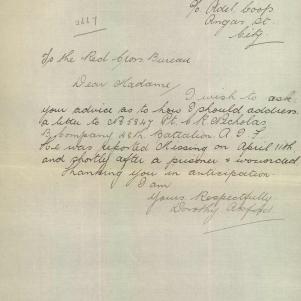 2667
C/o Adel. Coop
Angas St.
City
To the Red Cross Bureau
Dear Madame,
I wish to ask
your advice as to how I should address
a letter to No 5847 Pt. C. R. Nicholas
B Company 48th Battalion. A. I. F.
He was reported Missing on April 11th
and shortly after a prisoner & wounded
Thanking you in anticipation
I am
Yours Respectfully
Dorothy